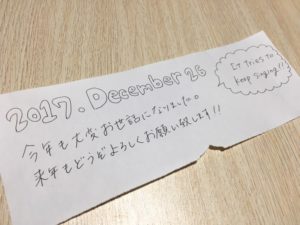 2017. December 26
It Tries to
keep singing!!
今年も大変お世話になりました。
来年もどうぞよろしくお願い致します!!